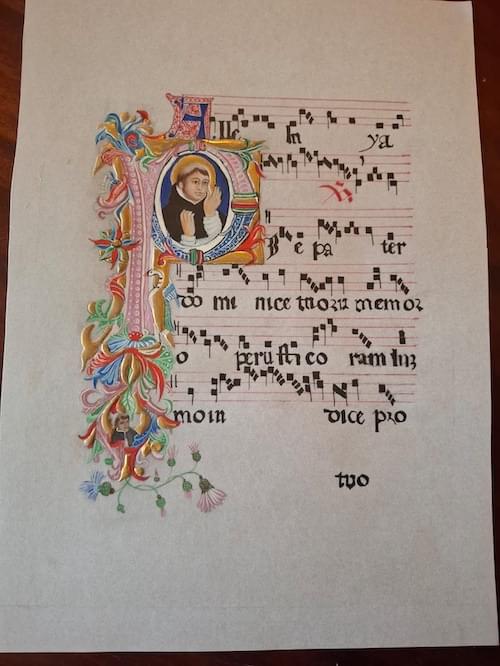 Alle lu ya
℣
P e pa ter
do mi nice tuorū memor
o perū sti co ram
mo iu dice pro
tuo